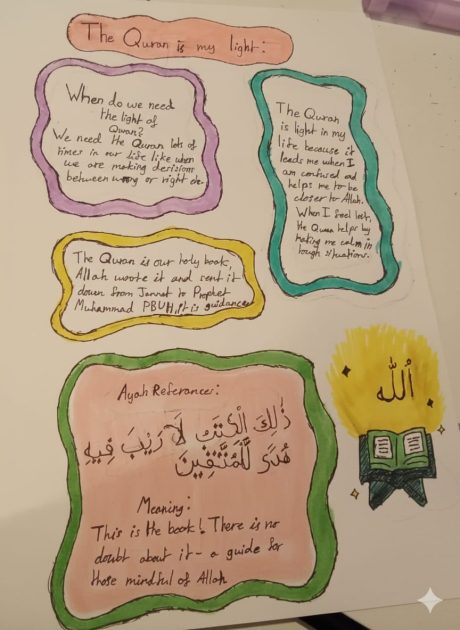 The Quran is my light:
When do we need
the light of
Quran?
We need the Quran lots of
times in our life like when
we are making decisions
between wrong or right etc.
The Quran
is light in my
life because it
leads me when I
am confused and
helps me to be
closer to Allah.
When I feel lost,
the Quran helps by
making me calm in
tough situations.
The Quran is our holy book,
Allah wrote it and sent it
down from Jannat to Prophet
Muhammad PBUH, it is guidance
Ayah Referance:
ذَٰلِكَ الْكِتَٰبُ لَا رَيْبَ فِيهِ
هُدًى لِّلْمُتَّقِينَ
Meaning:
This is the book! There is no
doubt about it - a guide for
those mindful of Allah
اللّٰه